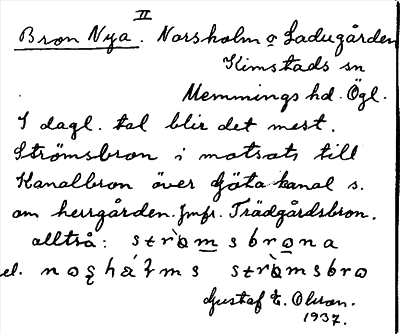 II
Bron Nya. Norsholm o Ladugården
Kimstads sn
Memmings hd. Ögl.
I dagl. tal blir det mest.
Strömsbron i motsats till
Kanalbron över Göta kanal s.
om herrgården. Jmfr. Trädgårdsbron.
alltså: strò̱msbrona
el. 
Gustaf E. Olsson.
1937.